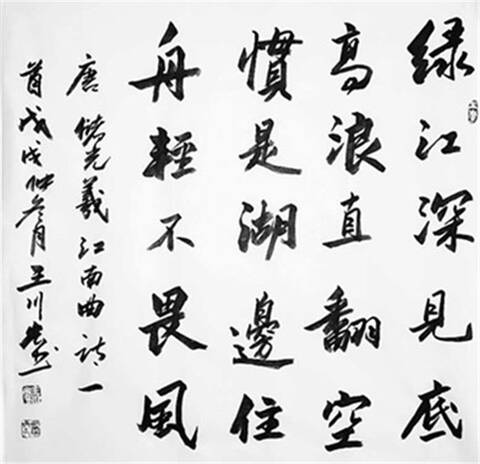 绿江深見底
高浪直翻空
慣是湖邊住
舟輕不畏風
唐儲光羲江南曲詩一
首戊戌仲冬月